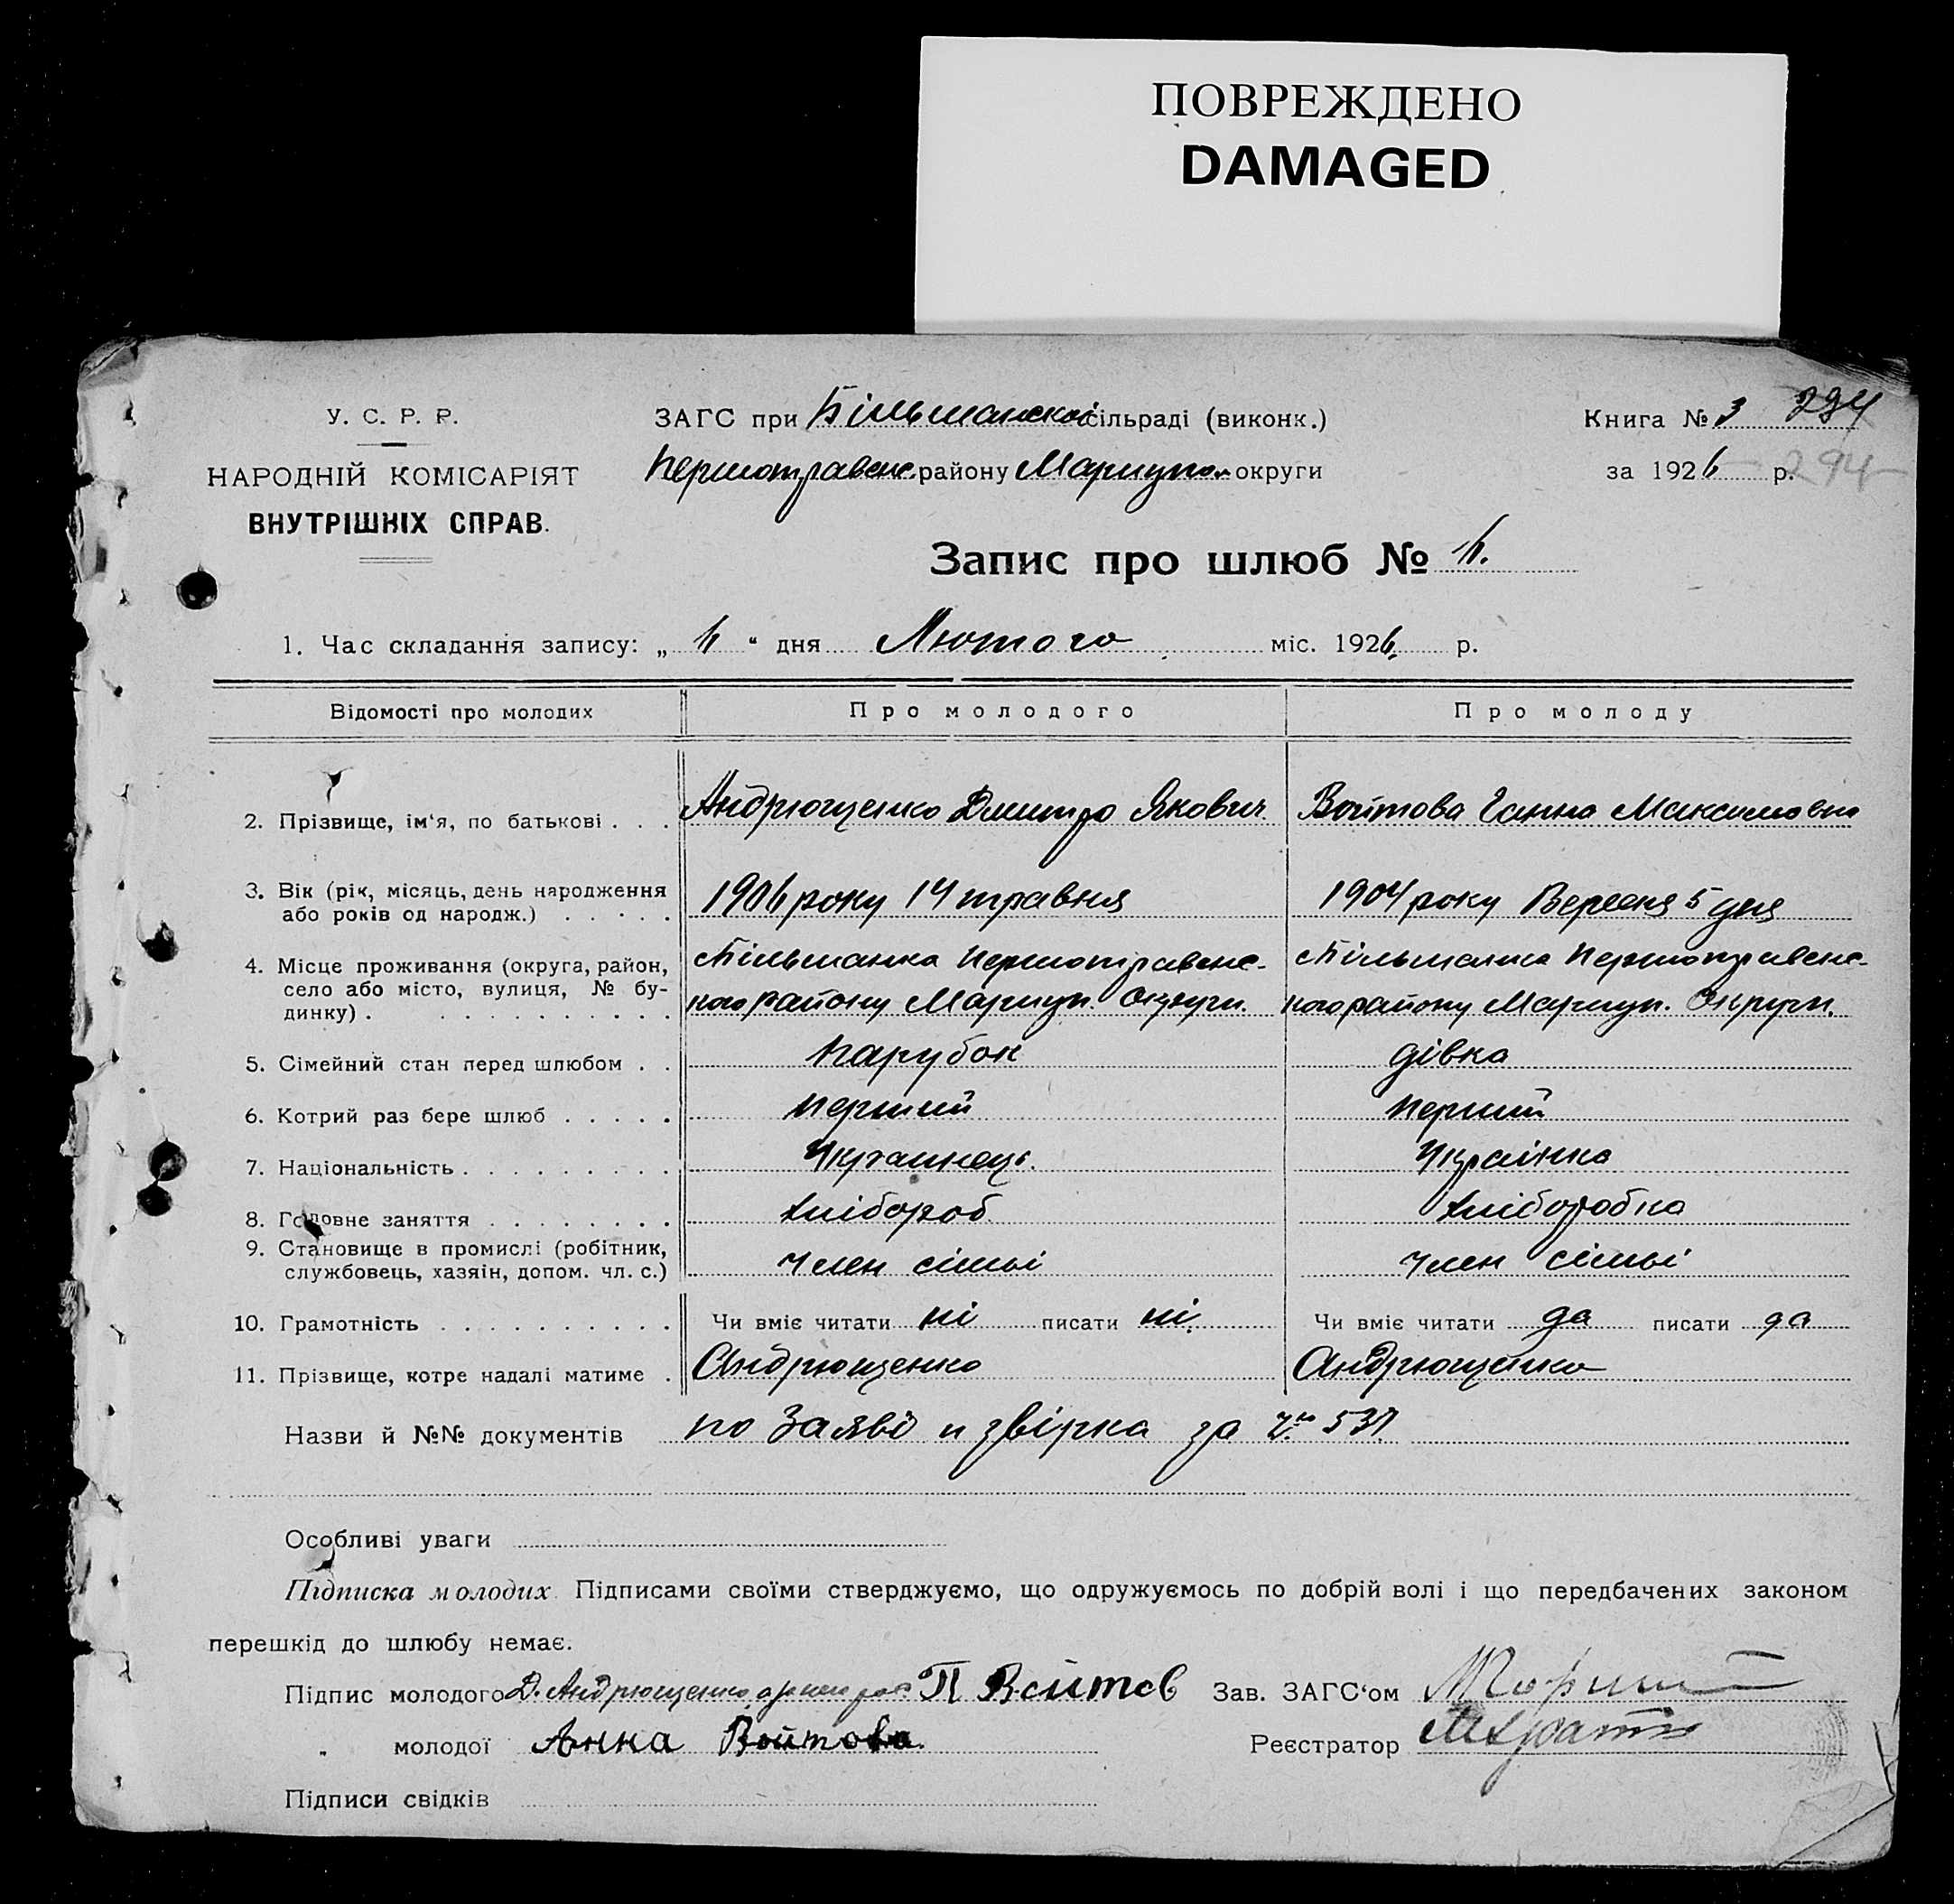 ПОВРЕЖДЕНО
DAMAGED
У. С. Р. Р.
НАРОДНІЙ КОМІСАРІЯТ
ВНУТРІШНІХ СПРАВ.
ЗАГС при Більманской сільраді (виконк.)
Першотравенс. району Маріуп. округи
Книга № 3 294
за 1926 р. 294
Запис про шлюб №
1. Час складання запису: „ “ дня Лютого міс. 1926 р.
Відомості про молодих Про молодого Про молоду
2. Прізвище, ім'я, по батькові . . . Андрющенко Дмитро Якович Войтова Ганна Максимовна
3. Вік (рік, місяць, день народження
або років од народж.) . . . . . 1906 року 14 травня 1904 року Вересня 5 дня
4. Місце проживання (округа, район, Більманка Першотравенс- Більманка Першотравенс-
село або місто, вулиця, № бу- кого району Маріуп. Округи. кого району Маріуп. Округи.
динку) . . . . . . . . . . .
5. Сімейний стан перед шлюбом . . парубок дівка
6. Котрий раз бере шлюб . . . . . перший перший
7. Національність . . . . . . . . . Українець. Українка
8. Головне заняття . . . . . . . . хлібороб хлібробка
9. Становище в промислі (робітник,
службовець, хазяін, допом. чл. с.) Член сімьі Член сімьі
10. Грамотність . . . . . . . . . . Чи вміє читати ні писати ні. Чи вміє читати да писати да
11. Прізвище, котре надалі матиме . Андрющенко Андрющенко
Назви й №№ документів по Заяві и звірка за 537
Особливі уваги
Підписка молодих. Підписами своїми стверджуємо, що одружуємось по добрій волі і що передбачених законом
перешкід до шлюбу немає.
Підпис молодого Д. Андрющенко П Войтов Зав. ЗАГС'ом
„ молодої Анна Войтова. Реєстратор
Підписи свідків